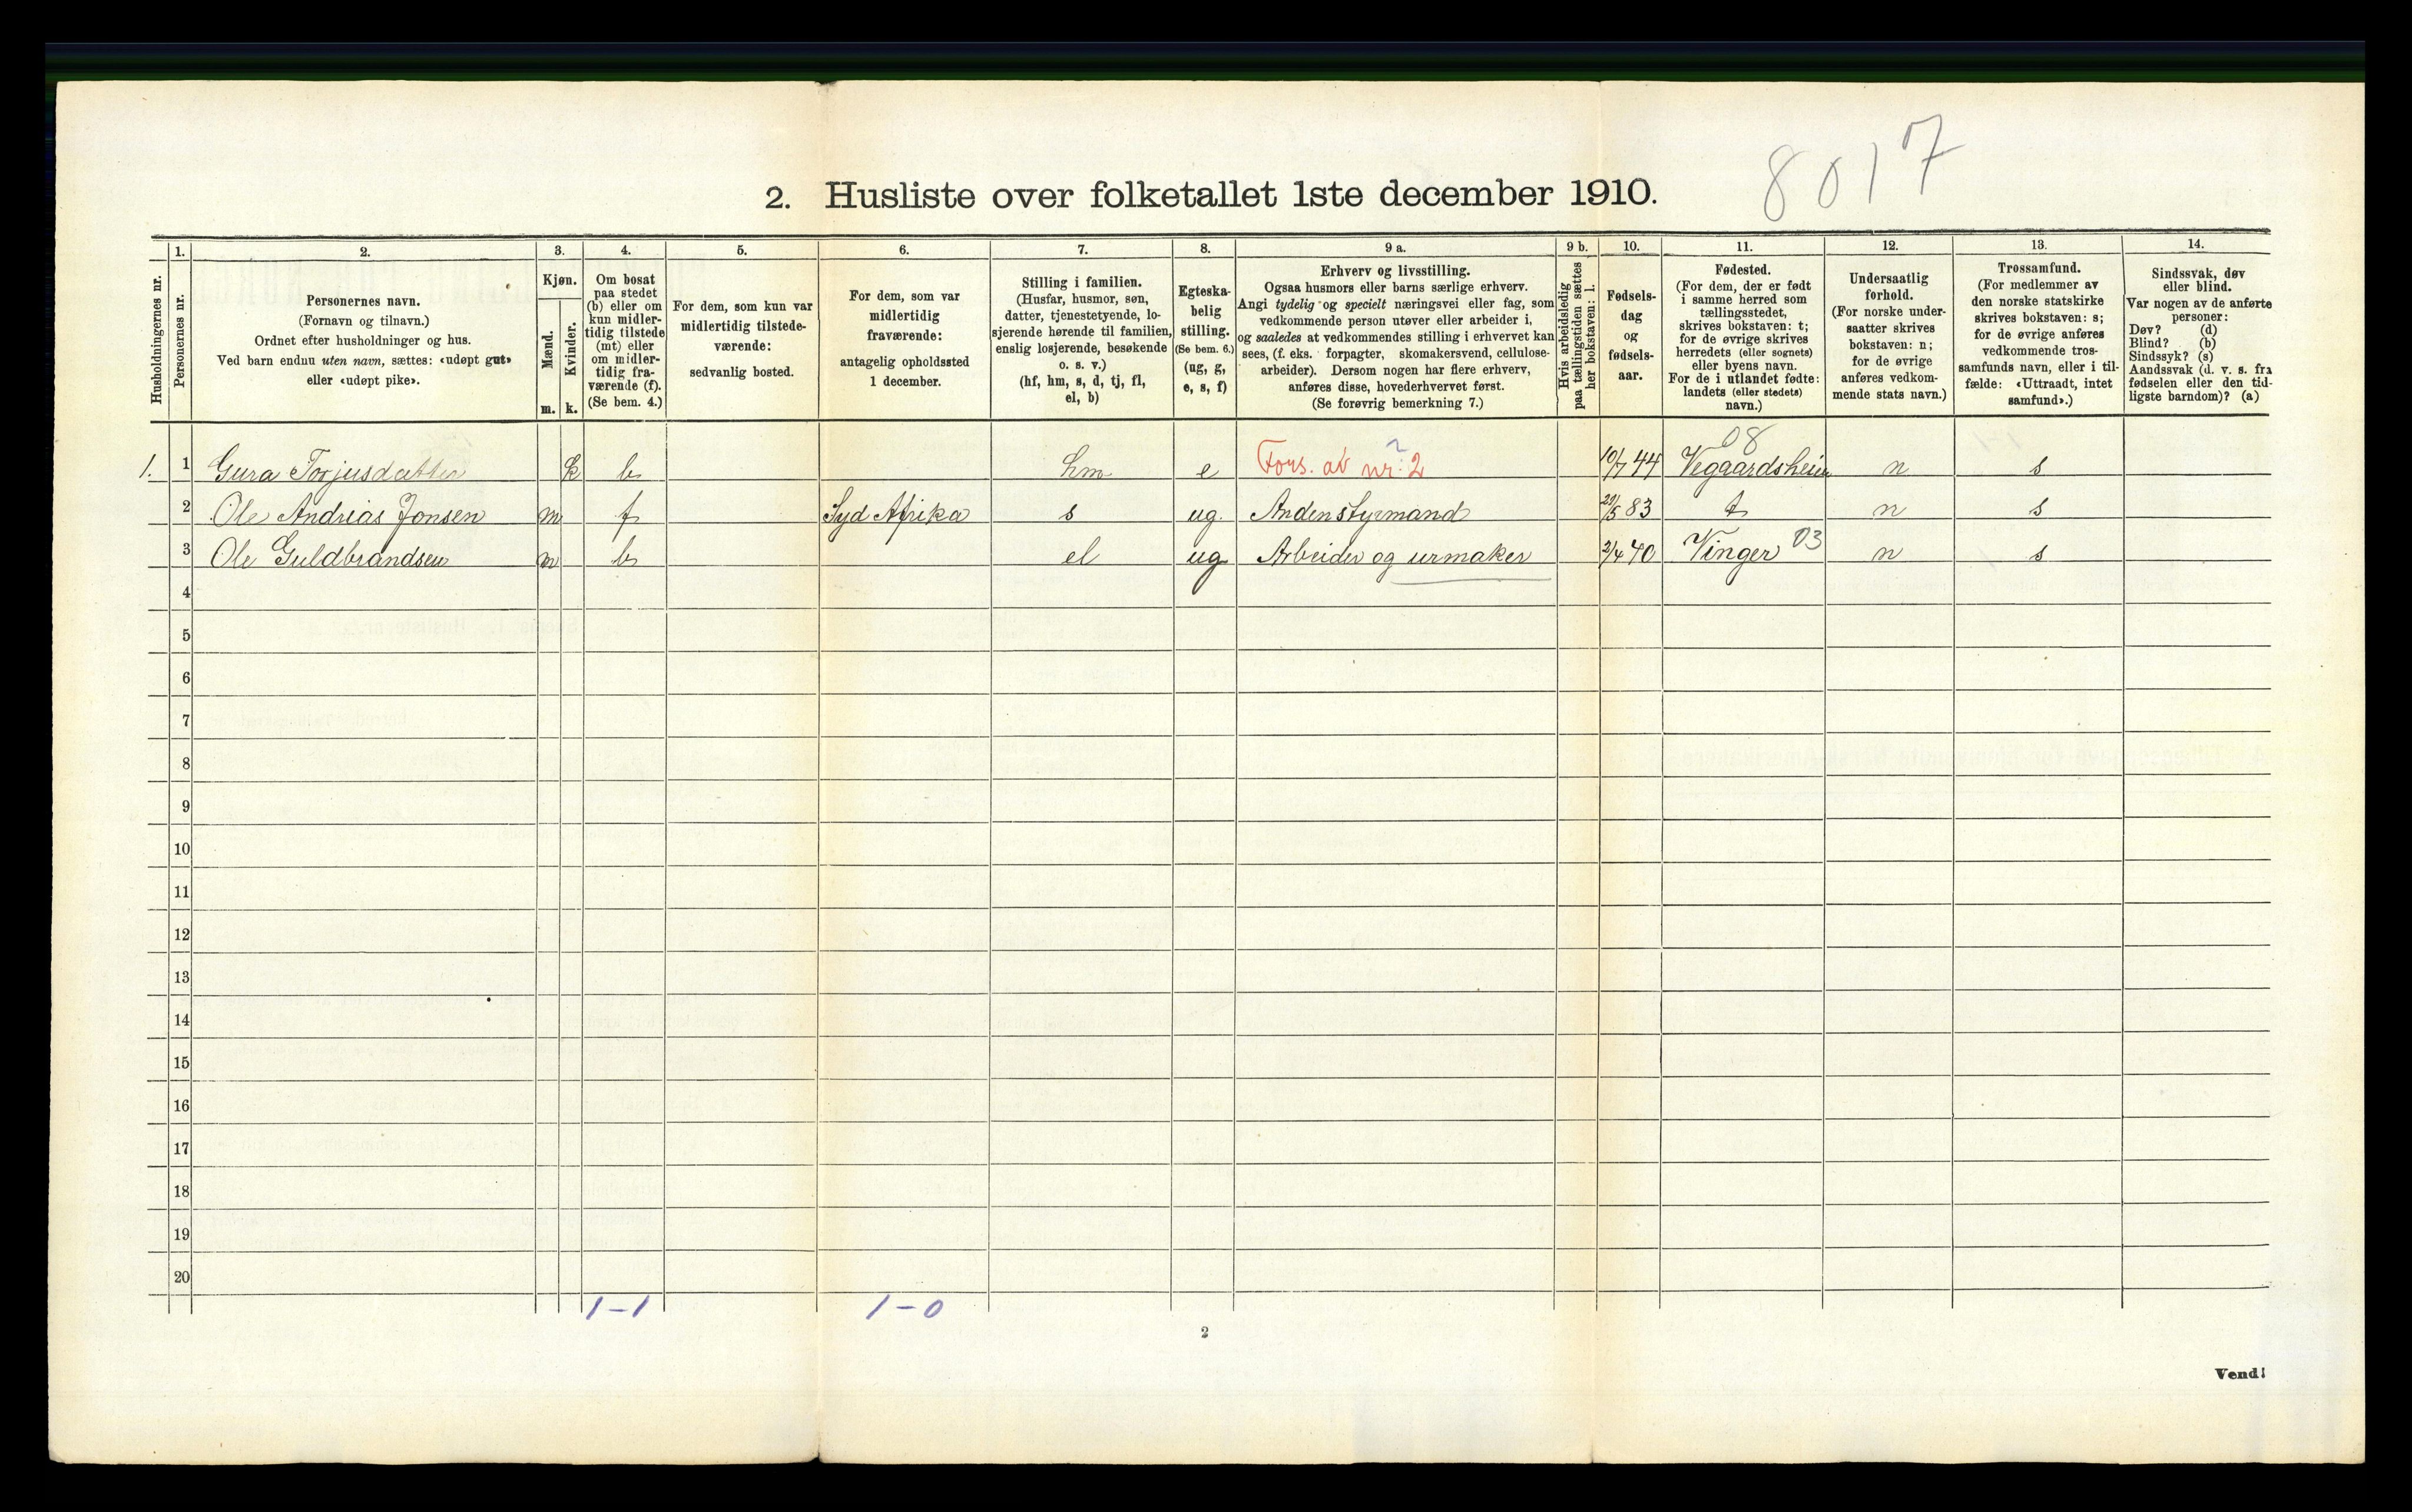 8017
2. Husliste over folketallet 1ste december 1910.
Husholdningernes nr.
1.
Personernes nr.
2.
Personernes navn.
(Fornavn og tilnavn.)
Ordnet efter husholdninger og hus.
Ved barn endnu uten navn, sættes: «udøpt gut»
eller «udøpt pike».
3.
Kjøn.
Mænd.
Kvinder.
m. k.
4.
Om bosat
paa stedet
(b) eller om
kun midler-
tidig tilstede
(mt) eller
om midler-
tidig fra-
værende (f).
(Se bem. 4.)
5.
For dem, som kun var
midlertidig tilstede-
værende:
sedvanlig bosted.
6.
For dem, som var
midlertidig
fraværende:
antagelig opholdssted
1 december.
7.
Stilling i familien.
(Husfar, husmor, søn,
datter, tjenestetyende, lo-
sjerende hørende til familien,
enslig losjerende, besøkende
o. s. v.)
(hf, hm, s, d, tj, fl,
el, b)
8.
Egteska-
belig
stilling.
(Se bem. 6.)
(ug, g,
e, s, f)
9 a.
Erhverv og livsstilling.
Ogsaa husmors eller barns særlige erhverv.
Angi tydelig og specielt næringsvei eller fag, som
vedkommende person utøver eller arbeider i,
og saaledes at vedkommendes stilling i erhvervet kan
sees, (f. eks. forpagter, skomakersvend, cellulose-
arbeider). Dersom nogen har flere erhverv,
anføres disse, hovederhvervet først.
(Se forøvrig bemerkning 7.)
9 b.
Hvis arbeidsledig
paa tællingstiden sættes
her bokstaven: l.
10.
Fødsels-
dag
og
fødsels-
aar.
11.
Fødested.
(For dem, der er født
i samme herred som
tællingsstedet,
skrives bokstaven: t;
for de øvrige skrives
herredets (eller sognets)
eller byens navn.
For de i utlandet fødte:
landets (eller stedets)
navn.)
12.
Undersaatlig
forhold.
(For norske under-
saatter skrives
bokstaven: n;
for de øvrige
anføres vedkom-
mende stats navn.)
13.
Trossamfund.
(For medlemmer av
den norske statskirke
skrives bokstaven: s;
for de øvrige anføres
vedkommende tros-
samfunds navn, eller i til-
fælde: «Uttraadt, intet
samfund».)
14.
Sindssvak, døv
eller blind.
Var nogen av de anførte
personer:
Døv? (d)
Blind? (b)
Sindssyk? (s)
Aandssvak (d. v. s. fra
fødselen eller den tid-
ligste barndom)? (a)
08
1. 1 Gura Torjusdatter k b hm e Fors. av nr. 2 10/7 44 Vegaardsheien n s
2 Ole Andrias Jonsen m f Syd Afrika s ug. Andenstyrmand /5 83 t n s
3 Ole Guldbrandsen m b el ug Arbeider og urmaker 2/4 40 Vinger 03 n s
4
5
6
7
8
9
10
11
12
13
14
15
16
17
18
19
20
1-1 1-0
2
Vend!